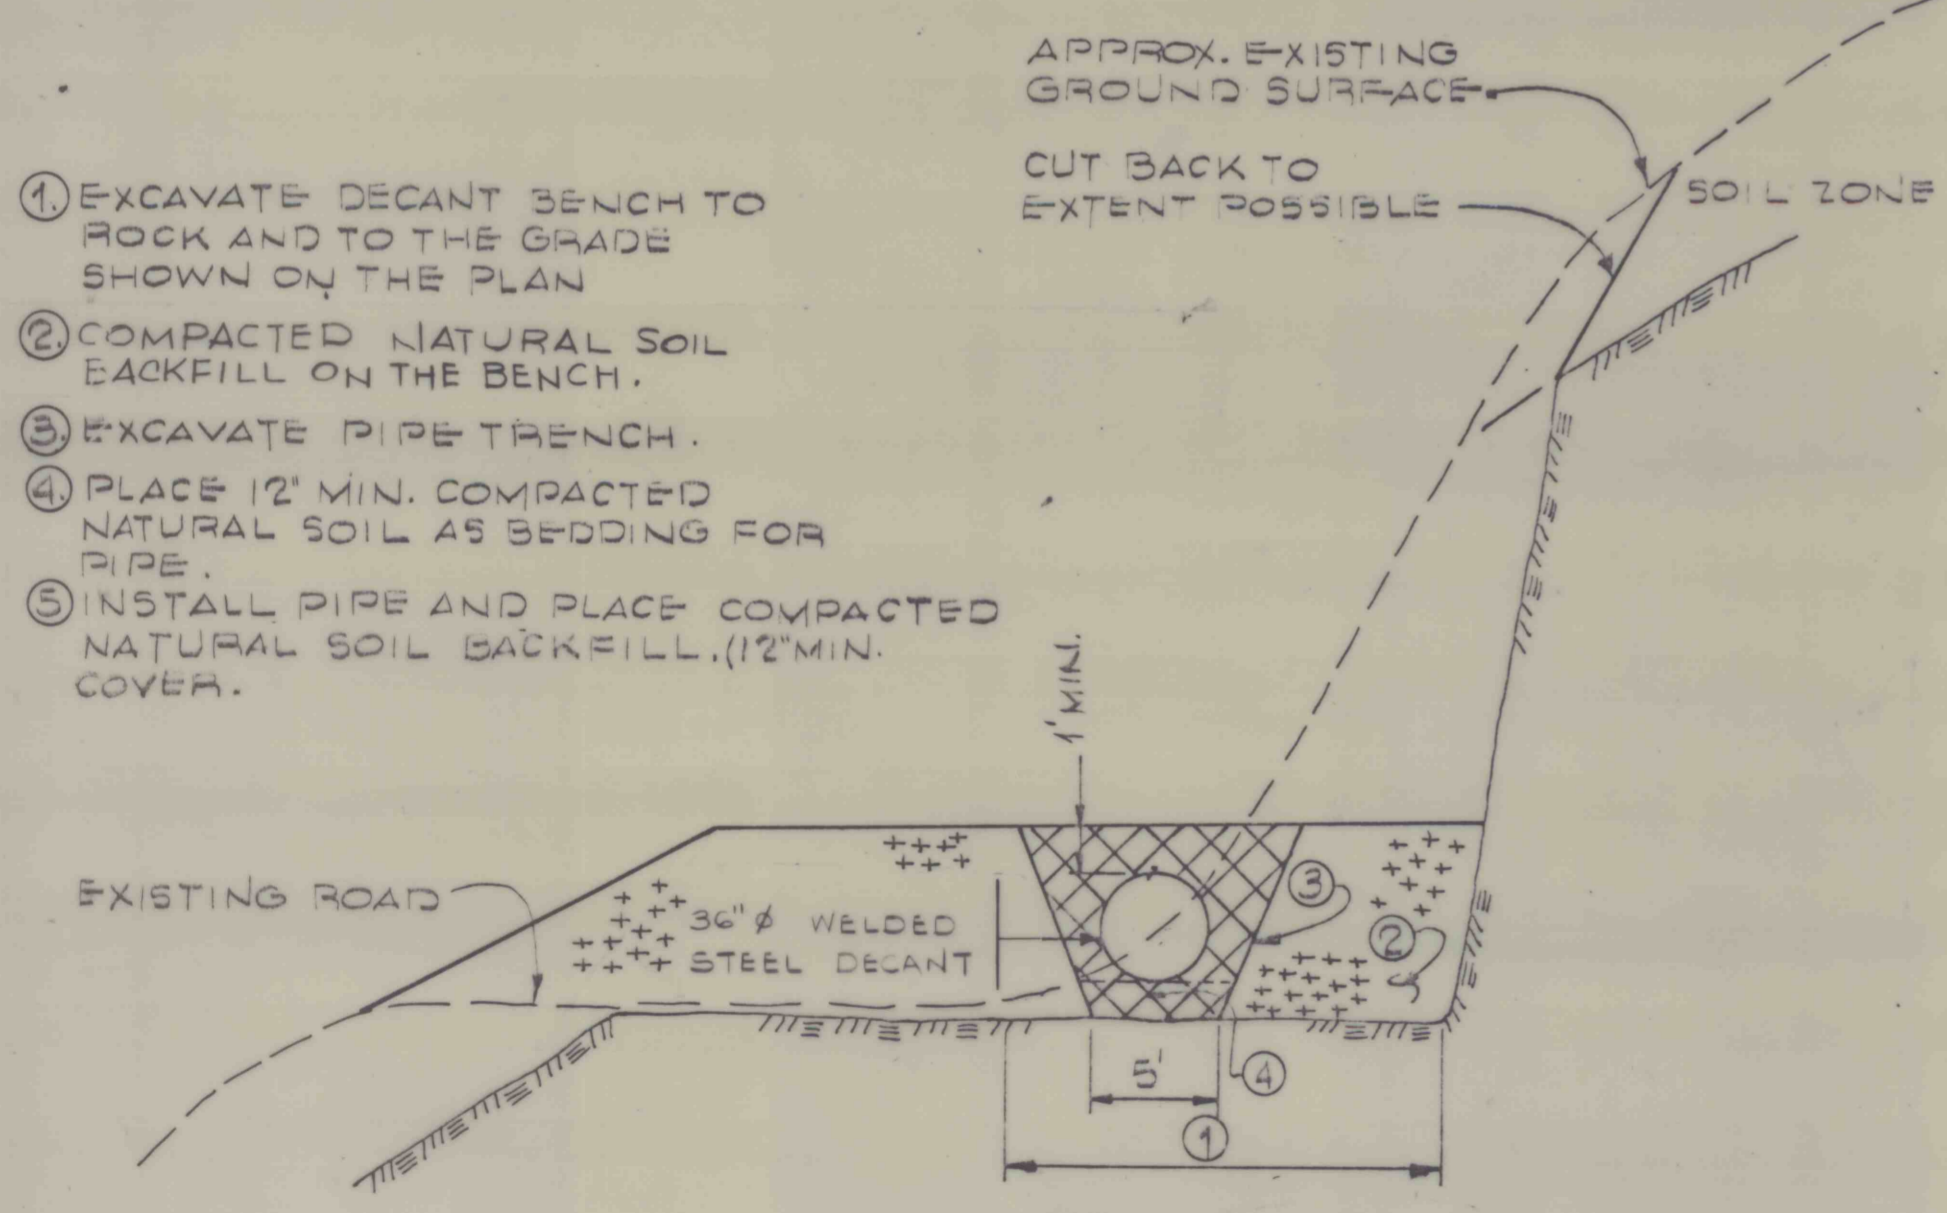 APPROX. EXISTING
GROUND SURFACE
CUT BACK TO
EXTENT POSSIBLE
SOIL ZONE
1. EXCAVATE DECANT BENCH TO
ROCK AND TO THE GRADE
SHOWN ON THE PLAN
2. COMPACTED NATURAL SOIL
BACKFILL ON THE BENCH.
3. EXCAVATE PIPE TRENCH.
4. PLACE 12" MIN. COMPACTED
NATURAL SOIL AS BEDDING FOR
PIPE.
5 INSTALL PIPE AND PLACE COMPACTED
NATURAL SOIL BACKFILL.(12"MIN.
COVER.
1' MIN.
EXISTING ROAD
36"ϕ WELDED
STEEL DECANT
3
2
5'
4
1